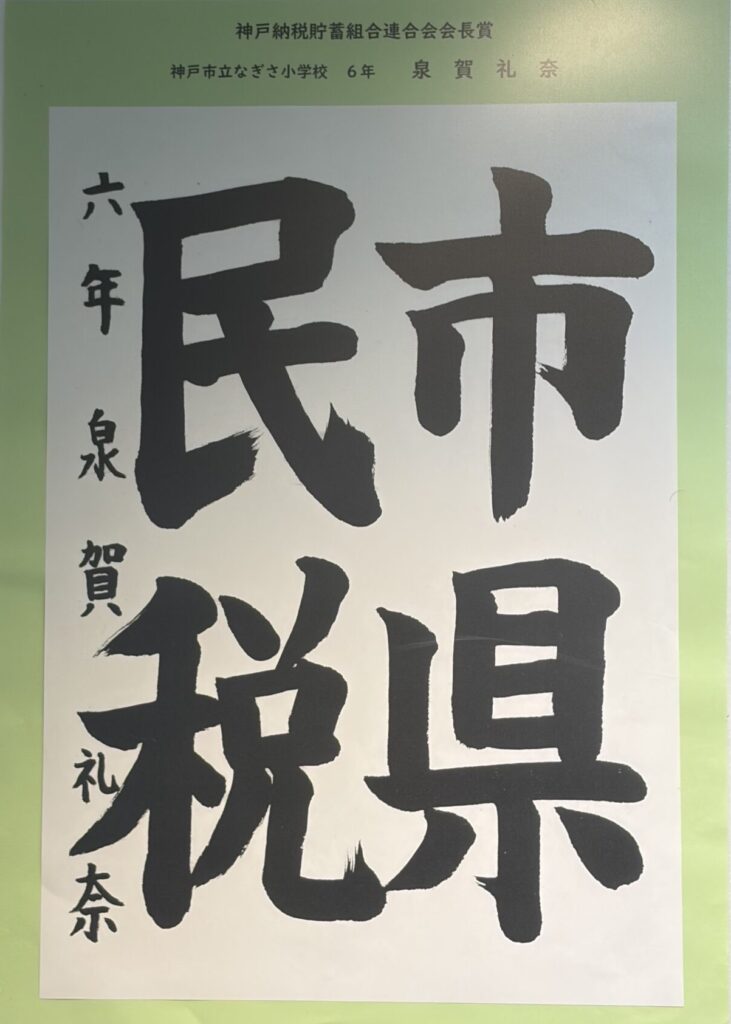 神戸納税貯蓄組合連合会会長賞
神戸市立なぎさ小学校 6年 泉 賀 礼 奈
市県
民税
六年 泉 賀 礼 奈